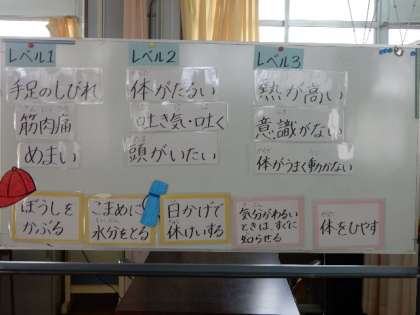 レベル1
手足のしびれ
筋肉痛
めまい
レベル2
体がだるい
吐き気・吐く
頭がいたい
レベル3
熱が高い
意識がない
体がうまく動かない
ぼうしを
かぶる
こまめに
水分をとる
日かげで
休けいする
気分がわるい
ときは、すぐに
知らせる
体をひやす